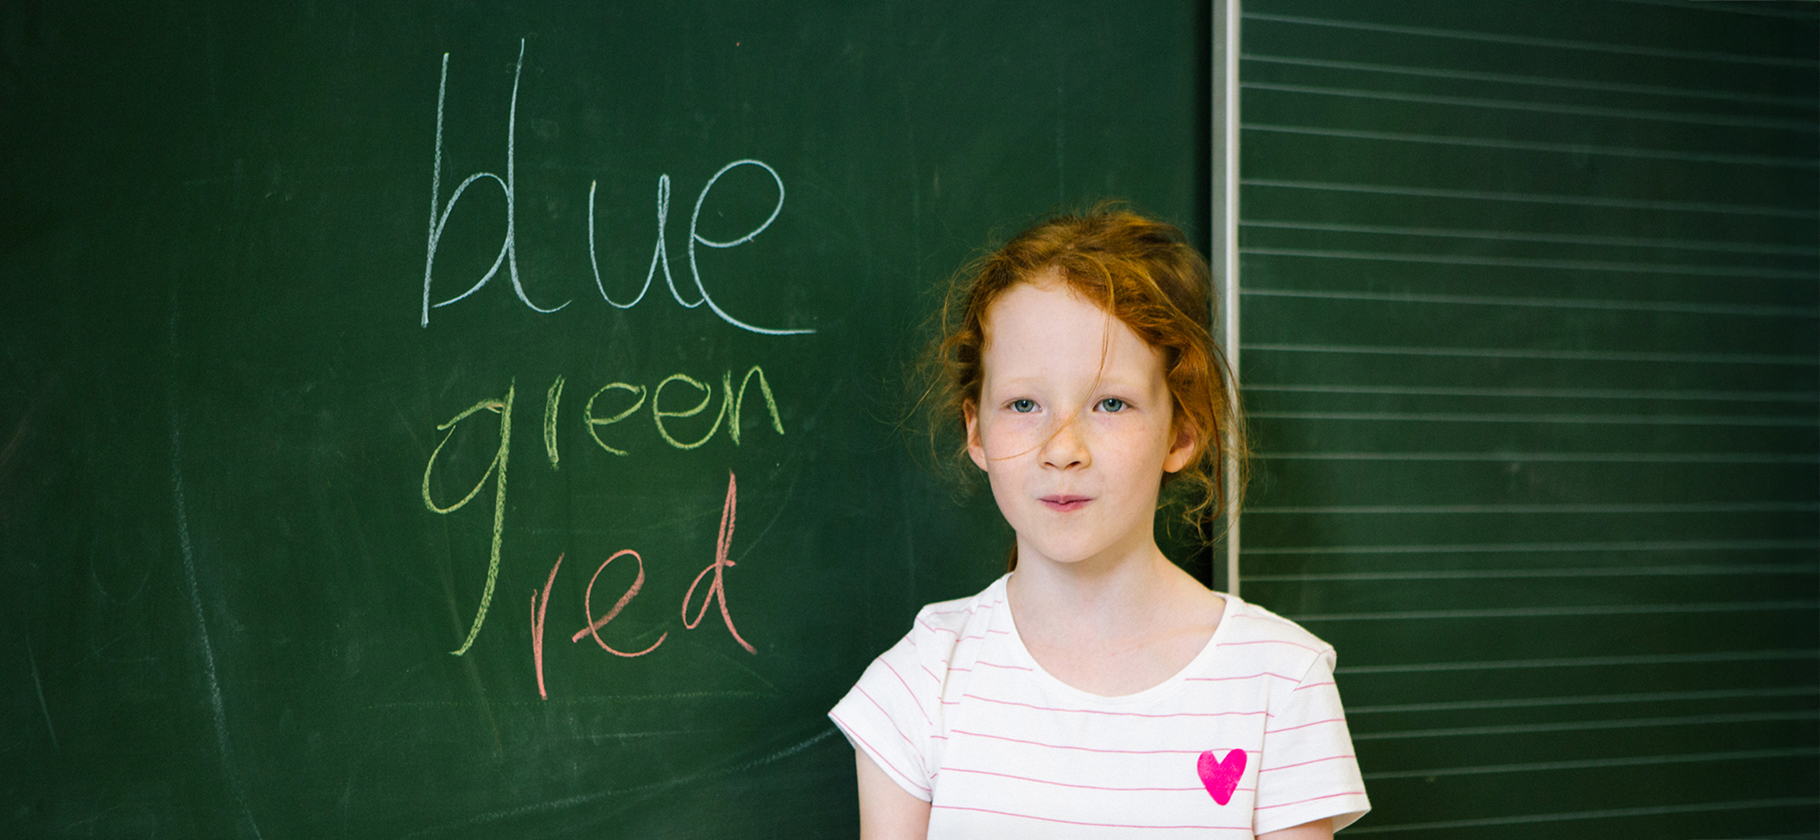 blue
green
red